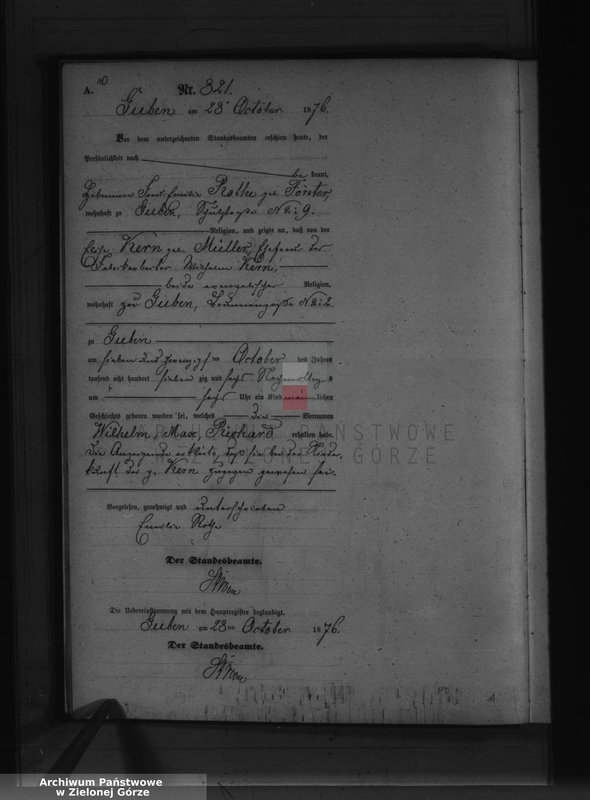 A. Nr. 321.
Guben am 28ᵗ October 1876.
Vor dem unterzeichneten Standesbeamten erschien heute, der
Persönlichkeit nach
be kannt,
Hebamme Emilie Rothe geb. Förster,
wohnhaft zu Guben, Schulstraße No: 9.
Religion, und zeigte an, daß von der
Kern geb. Müller, Ehefrau des
Fabrikarbeiter Wilhelm Kern,
beide evangelischer Religion,
wohnhaft zu Guben, No: 2.
zu Guben
am sieben und zwanzigsten October des Jahres
tausend acht hundert sieben zig und sechs Nachmittags
um sechs Uhr ein Kind männlichen
Geschlechts geboren worden sei, welches die Vornamen
Wilhelm, Max, Richard erhalten habe.
Die Anzeigende erklärte, daß sie bei der Nieder-
kunft der p. Kern zugegen gewesen sei.
Vorgelesen, genehmigt und unterschrieben
Emilie Rothe
Der Standesbeamte.
Die Uebereinstimmung mit dem Hauptregister beglaubigt.
Guben am 28ten October 1876.
Der Standesbeamte.
ARCHIWUM PAŃSTWOWE
W ZIELONEJ GÓRZE
Archiwum Państwowe
w Zielonej Górze